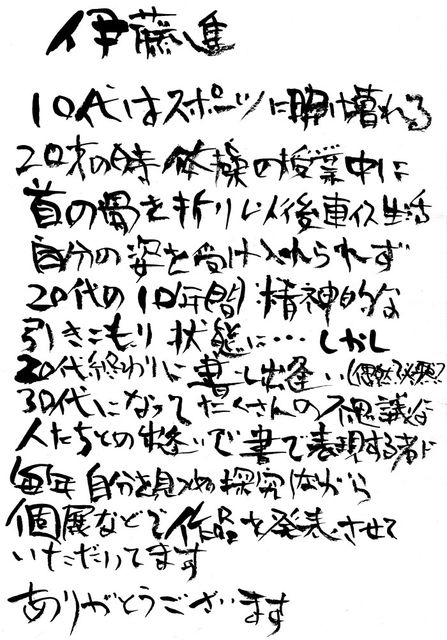 伊藤進
10代はスポーツに明け暮れる
20才の時 体操の授業中に
首の骨を折り以後車イス生活
自分の姿を受け入れられず
20代の10年間 精神的な
引きこもり状態に… しかし
20代終わりに書と出逢い (偶然?必然!?)
30代になってたくさんの不思議な
人たちとの出逢いで書で表現する者に
毎年 自分を見つめ探究しながら
個展などで作品を発表させて
いただいてます
ありがとうございます